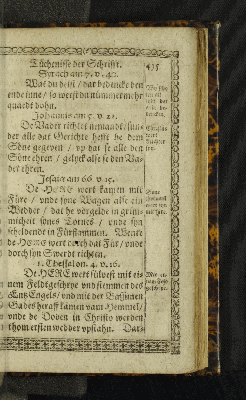 Tüchenisse der Schrifft.
Syrach am 7. v. 40.
Wat du deist / dar bedencke den
ende inne / so werst du nummermehr
quaedt dohn.
Johannis am 5. v. 22.
De Vader richtet nemandt / sun-
der alle dat Gerichte hefft he dem
Söne gegeven / up dat se alle den
Söne ehren / gelyck alse se den Va-
der ehren.
Jesaiæ am 66. v. 15.
De HERE wert kamen mit
Füre / unde syne Wagen alse ein
Wedder / dat he vergelde in grim-
micheit synes Tornes / unde syn
scheldendt in Fürflammen. Wente
de HERE wert dorch dat Für / unde
dorch syn Swerdt richten.
1. Thessalon. 4. v. 16.
De HERE wert sülvest mit ei-
nem Feldtgeschrye und stemmen des
Ertz Engels / und mit der Bassunen
Gades heraff kamen vam Hemmel /
unde de Doden in Christo werden
thom ersten wedder upstahn. Dar-
435